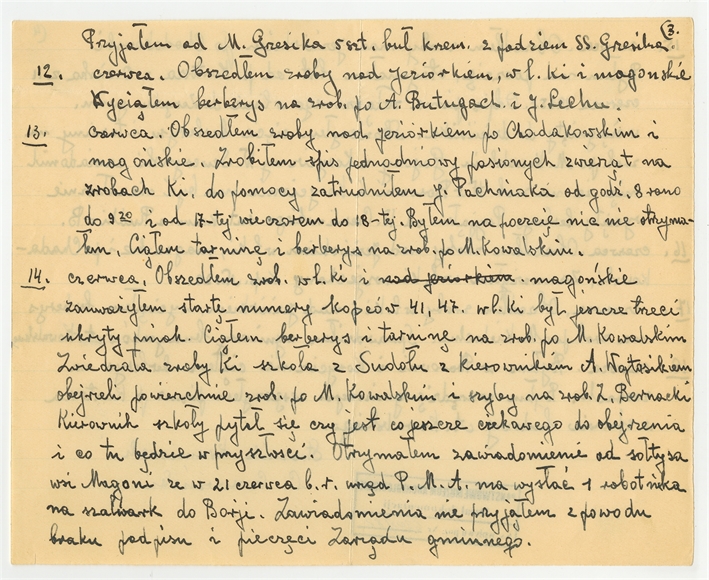 3.
Przyjąłem od M. Gresika 5 szt. buł krem. z podziem SS. Gresika.
12. czerwca. Obszedłem zroby nad Jeziórkiem, wł. Ki i magońskie
Wyciąłem berberys na zrob. po A. Butugach i J. Lechu.
13. czerwca. Obszedłem zroby nad jeziórkiem po Chadakowskim i
magońskie. Zrobiłem spis jednodniowy pasionych zwierząt na
zrobach Ki. do pomocy zatrudniłem J. Pachniaka od godź. 8 rano
do 9 20 i od 17-tej wieczorem do 18-tej. Byłem na poczcię nic nie otryma-
łem. Ciąłem tarninę i berberys na zrob. po M. Kowalskim.
14. czerwca. Obszedłem zrob. wł. Ki i nad jeziorkiem magońskie
zauważyłem starte numery kopców 41, 47. wł. Ki był jeszcze trzeci
ukryty pniak. Ciąłem berberys i tarninę na zrob. po M. Kowalskim
Zwiedzała zroby Ki szkoła z Sudołu z kierownikiem A. Wątosikiem
obejreli powierzchnie zrob. po M. Kowalskim i szyby na zrob. Z. Bernacki
Kierownik szkoły pytał się czy jest co jeszcze czekawego do obejrzenia
i co tu będzie w przyszłości. Otrymałem zawiadomienie od sołtysa
wsi Magoni że w 21 czerwca b.r. urząd P.M.A. ma wysłać 1 robotnika
na szarwark do Borji. Zawiadomienia nie przyjąłem z powodu
braku podpisu i pieczęci Zarządu gminnego.